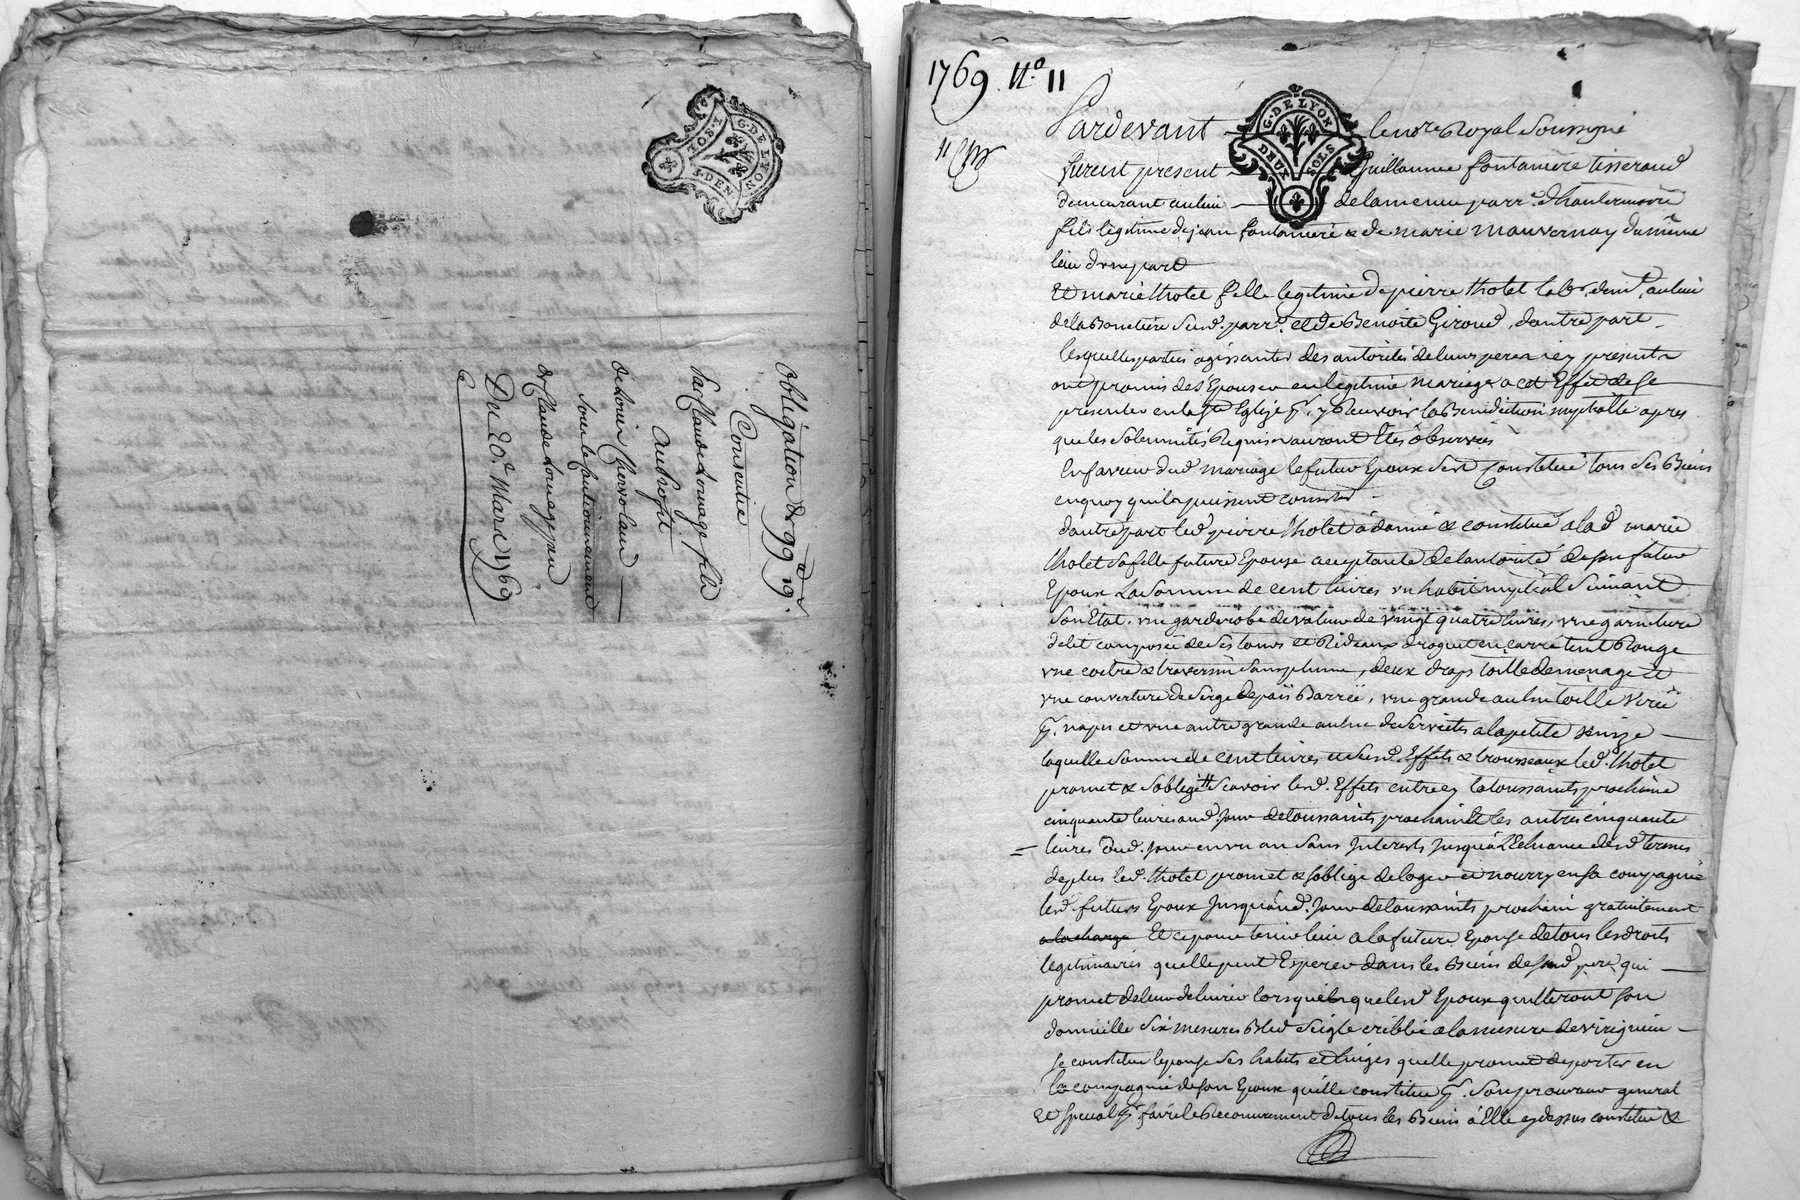 G. DE LYON
I. SOL. Y
3. DEN
Obligation de 99# 19s.
Consentie
Par Claude Louvage fils
Au Profit
de Louis Chervolain
sous le Cautionnement
de Claude Louvage pere
Du 20e. Mars 1769
1769. N.o 11
11
G. DE LYON
DEUX SOLS
Pardevant le no.re Royal Soussigné
furent present Guillaume fontaniere tisserand
demeurant au lieu de parr.e d'hauterivoire
fils legitime de jean fontaniere & de marie mauvernay du même
lieu d'une part
Et marie thotel fille legitime de pierre thotel lab.r dem.t au lieu
de la Bonetiere Susd. parr.e et de Benoite Giroud, d'autre part
lesquelles parties agissantes des autorités de leurs peres icy presents
ont promis de s'Epouser en legitime mariage a cet Effet de se
presenter en la Ste Eglize p.r y Recevoir la Benediction nuptialle apres
que les Solemnités Requises auront Etés observées
En faveur dud. mariage le futur Epoux s'est Constitué tous ses Biens
en quoy qu'ils puissent consister
d'autre part led. pierre thotel a donné & constitué a lad. marie
thotel sa fille future Epouse acceptante de l'autorité de son futur
Epoux La Somme de cent livres un habit nuptial Suivant
Son Etat, une garderobe de valeur de vingt quatre livres, une garniture
de lit composée de ses tours et Rideaux droguet en carré teint Rouge
une coetre & traversin sans plume, deux draps toille de menage et
une couverture de Serge de païs Barrée, une grande aulne toille
p.r napes et une autre grande aulne de Serviettes a la petite Venize
laquelle Somme de cent livres et Susd. Effets & trousseaux led. thotel
promet & s'oblige Scavoir lesd. Effets entre cy la toussaints prochaine
cinquante livres aud. jour de toussaints prochain Et les autres cinquante
livres dud. jour en un an sans Interests jusqu'à l'Echeance desd. termes
de plus led. thotel promet & s'oblige de loger et nourry en sa compagnie
lesd. futurs Epoux jusqu'aud. jour de toussaints prochain gratuitement
a la charge Et ce pour tenir lieu a la future Epouse de tous les droits
legitimaires quelle peut Esperer dans les Biens de sond. pere qui
promet de leur delivrer lorsque lesd. Epoux quitteront son
domicille Six mesures Bled Seigle criblé a la mesure de
Se constitue lepouse ses habits et linges quelle promet de porter en
la compagnie de son Epoux quelle constitue p.r Son procureur general
Et special p.r faire le Recouvrement de tous les Biens a Elle cy dessus constitué &